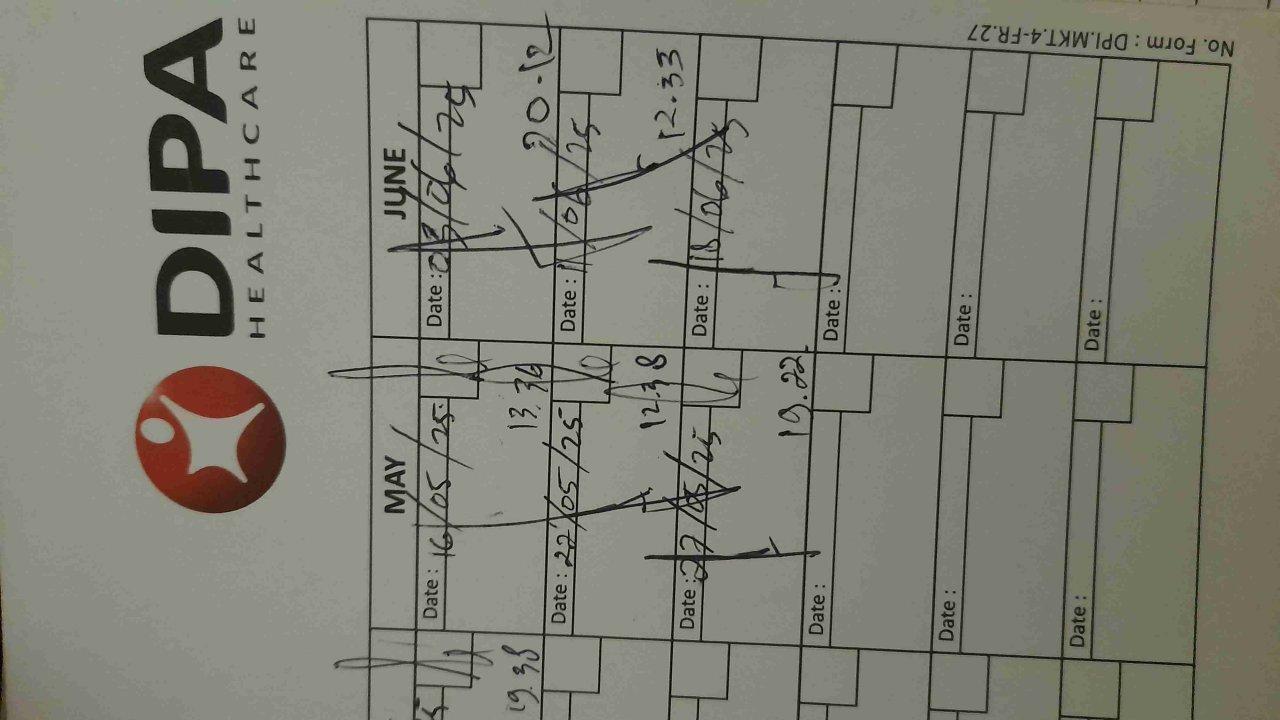 DIPA
HEALTHCARE
MAY JUNE
Date : 16/05/25 Date : 03/06/25
19.38 13.36 20.12
Date : 22/05/25 Date : 11/06/25
12.38 12.33
Date : 27/05/25 Date : 18/06/25
19.22
Date : Date :
Date : Date :
Date : Date :
No. Form : DPI.MKT.4-FR.27